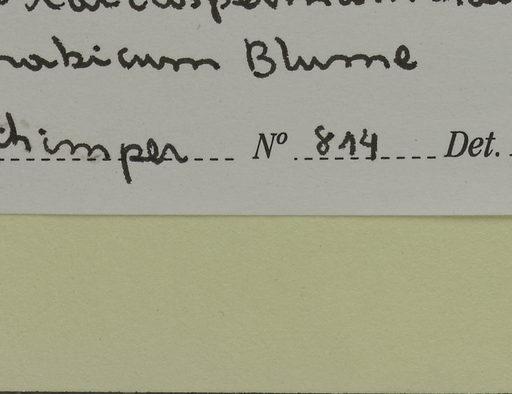 rabicum Blume
himper Nº 814 Det.